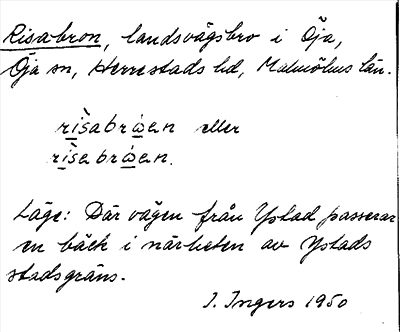 Risabron, landsvägsbro i Öja,
Öja sn, Herrestads hd, Malmöhus län.
rìsabrωan eller
rìsebrωan.
Läge: Där vägen från Ystad passerar
en bäck i närheten av Ystads
stadsgräns.
I. Ingers 1950